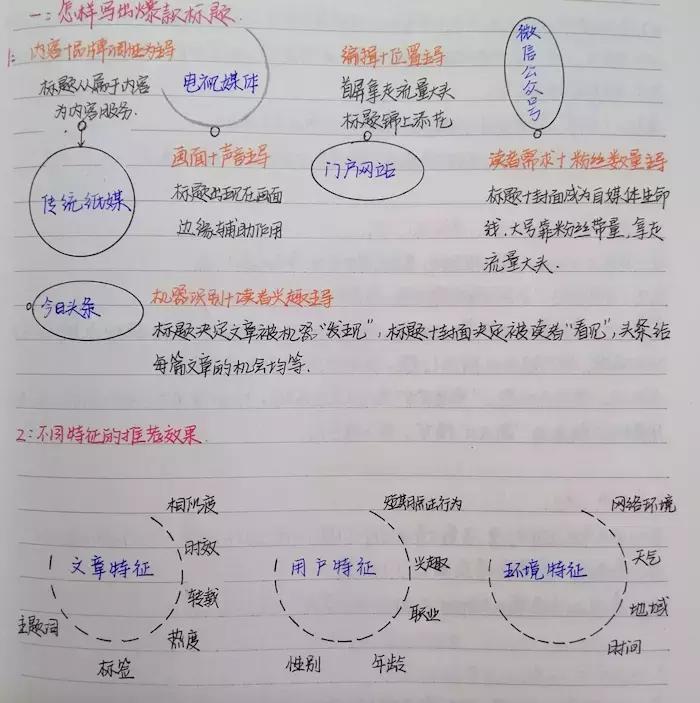 一：怎样写出爆款标题.
1：
内容+品牌调性为主导
标题从属于内容
为内容服务.
传统纸媒
电视媒体
画面+声音主导
标题出现在画面
边缘辅助作用
编辑+位置主导
首屏拿走流量大头
标题锦上添花
门户网站
微信公众号
读者需求+粉丝数量主导
标题+封面成为自媒体生命
线,大号靠粉丝带量,拿走
流量大头.
今日头条
机器识别+读者兴趣主导
标题决定文章被机器“发现”,标题+封面决定被读者“看见”,头条给
每篇文章的机会均等.
2：不同特征的推荐效果.
文章特征
相似度
时效
转载
热度
标签
主题词
用户特征
短期点击行为
兴趣
职业
年龄
性别
环境特征
网络环境
天气
地域
时间